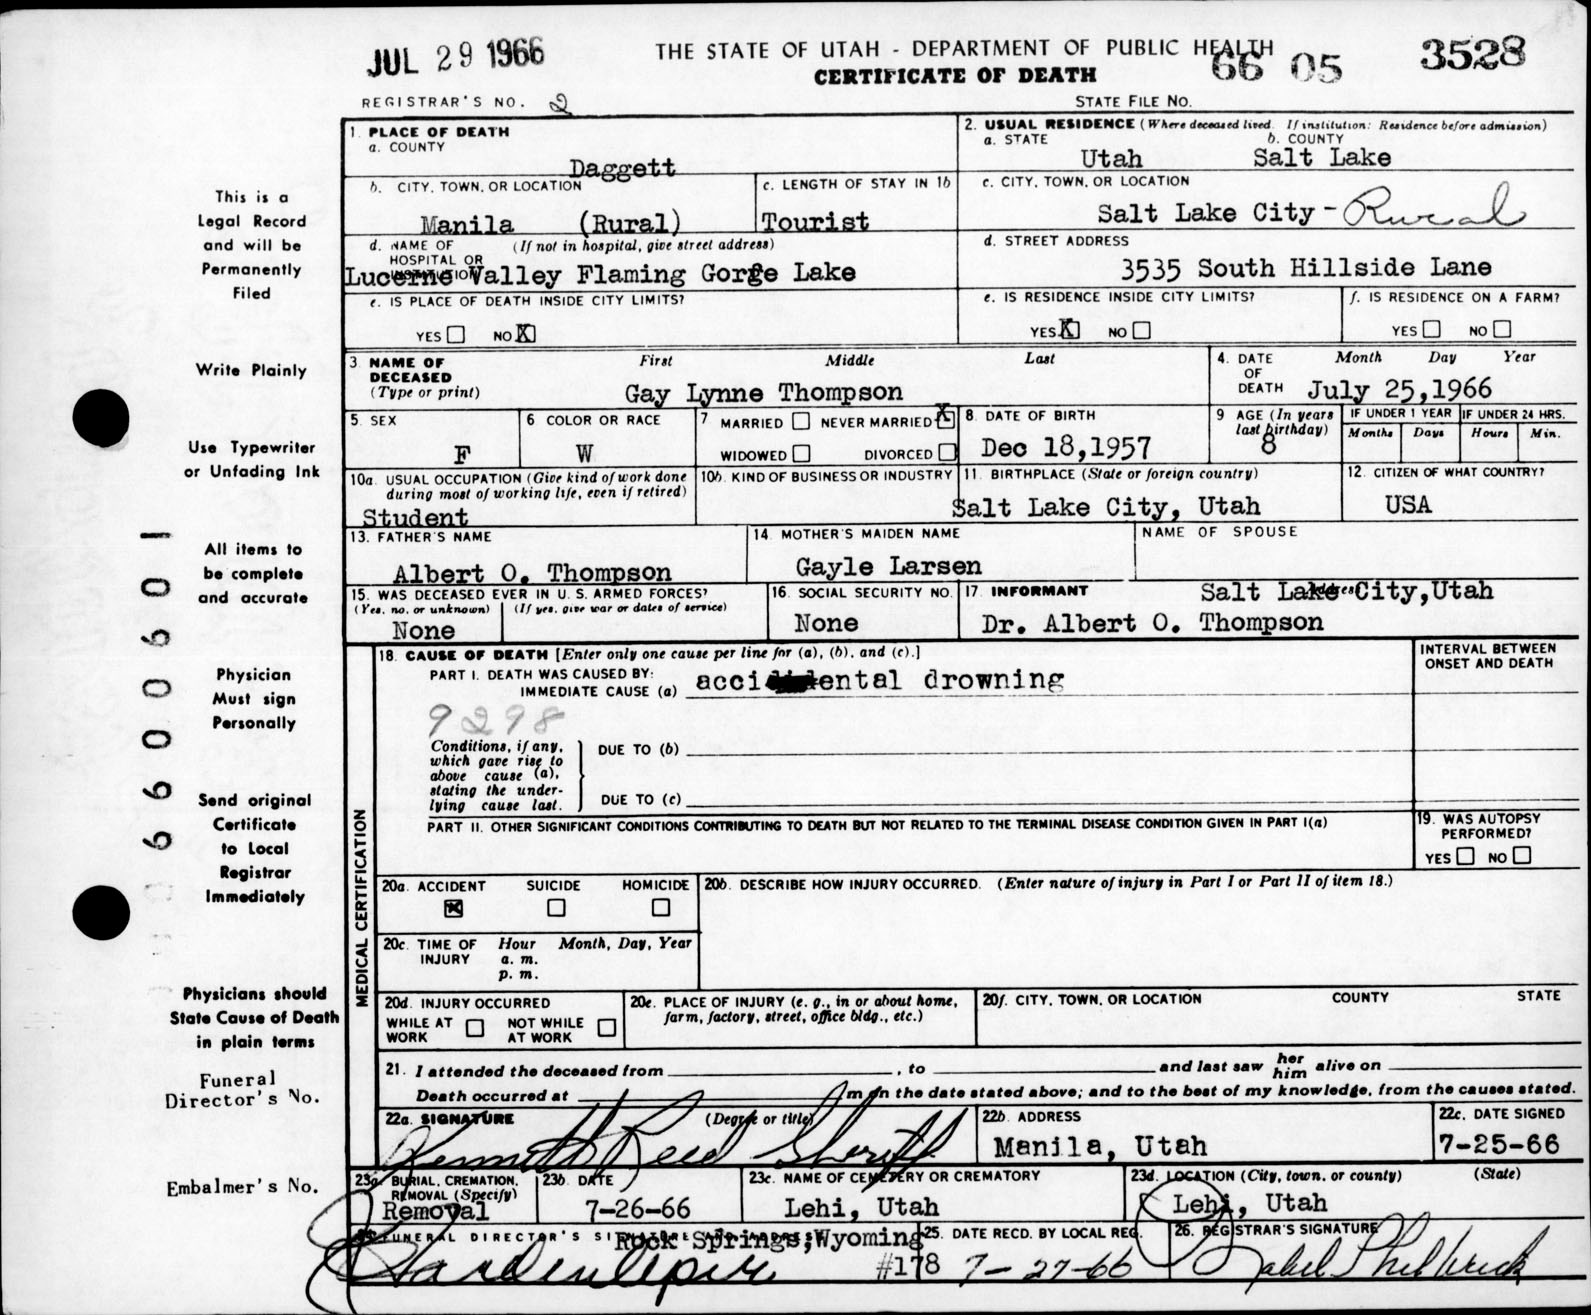 JUL 29 1966
THE STATE OF UTAH - DEPARTMENT OF PUBLIC HEALTH
CERTIFICATE OF DEATH
66 05 3528
REGISTRAR'S NO. 2
STATE FILE NO.
This is a
Legal Record
and will be
Permanently
Filed
Write Plainly
Use Typewriter
or Unfading Ink
All items to
be complete
and accurate
Physician
Must sign
Personally
Send original
Certificate
to Local
Registrar
Immediately
Physicians should
State Cause of Death
in plain terms
Funeral
Director's No.
Embalmer's No.
6600601
1. PLACE OF DEATH
a. COUNTY
Daggett
2. USUAL RESIDENCE (Where deceased lived. If institution: Residence before admission)
a. STATE b. COUNTY
Utah Salt Lake
b. CITY, TOWN, OR LOCATION
Manila (Rural)
c. LENGTH OF STAY IN 1b
Tourist
c. CITY, TOWN, OR LOCATION
Salt Lake City - Rural
d. NAME OF (If not in hospital, give street address)
HOSPITAL OR
INSTITUTION
Lucerne Valley Flaming Gorge Lake
d. STREET ADDRESS
3535 South Hillside Lane
e. IS PLACE OF DEATH INSIDE CITY LIMITS?
YES NO X
e. IS RESIDENCE INSIDE CITY LIMITS?
YES X NO
f. IS RESIDENCE ON A FARM?
YES NO
3. NAME OF DECEASED
(Type or print)
First Middle Last
Gay Lynne Thompson
4. DATE OF DEATH
Month Day Year
July 25,1966
5. SEX
F
6 COLOR OR RACE
W
7 MARRIED NEVER MARRIED X
WIDOWED DIVORCED
8. DATE OF BIRTH
Dec 18,1957
9 AGE (In years last birthday)
8
IF UNDER 1 YEAR
Months Days
IF UNDER 24 HRS.
Hours Min.
10a. USUAL OCCUPATION (Give kind of work done
during most of working life, even if retired)
Student
10b. KIND OF BUSINESS OR INDUSTRY
11. BIRTHPLACE (State or foreign country)
Salt Lake City, Utah
12. CITIZEN OF WHAT COUNTRY?
USA
13. FATHER'S NAME
Albert O. Thompson
14. MOTHER'S MAIDEN NAME
Gayle Larsen
NAME OF SPOUSE
15. WAS DECEASED EVER IN U. S. ARMED FORCES?
(Yes, no, or unknown) (If yes, give war or dates of service)
None
16. SOCIAL SECURITY NO.
None
17. INFORMANT
Salt Lake City,Utah
Dr. Albert O. Thompson
MEDICAL CERTIFICATION
18. CAUSE OF DEATH [Enter only one cause per line for (a), (b), and (c).]
PART I. DEATH WAS CAUSED BY:
IMMEDIATE CAUSE (a) accidental drowning
INTERVAL BETWEEN
ONSET AND DEATH
9298
Conditions, if any,
which gave rise to
above cause (a),
stating the under-
lying cause last.
DUE TO (b)
DUE TO (c)
PART II. OTHER SIGNIFICANT CONDITIONS CONTRIBUTING TO DEATH BUT NOT RELATED TO THE TERMINAL DISEASE CONDITION GIVEN IN PART I(a)
19. WAS AUTOPSY
PERFORMED?
YES NO
20a. ACCIDENT SUICIDE HOMICIDE
X
20b. DESCRIBE HOW INJURY OCCURRED. (Enter nature of injury in Part I or Part II of item 18.)
20c. TIME OF INJURY
Hour Month, Day, Year
a. m.
p. m.
20d. INJURY OCCURRED
WHILE AT WORK NOT WHILE AT WORK
20e. PLACE OF INJURY (e. g., in or about home,
farm, factory, street, office bldg., etc.)
20f. CITY, TOWN, OR LOCATION COUNTY STATE
21. I attended the deceased from , to and last saw her him alive on
Death occurred at m on the date stated above; and to the best of my knowledge, from the causes stated.
22a. SIGNATURE (Degree or title)
Kenneth Reed Sheriff
22b. ADDRESS
Manila, Utah
22c. DATE SIGNED
7-25-66
23a. BURIAL, CREMATION,
REMOVAL (Specify)
Removal
23b. DATE
7-26-66
23c. NAME OF CEMETERY OR CREMATORY
Lehi, Utah
23d. LOCATION (City, town, or county) (State)
Lehi, Utah
FUNERAL DIRECTOR'S SIGNATURE AND ADDRESS
Rock Springs,Wyoming
#178
25. DATE RECD. BY LOCAL REG.
7-27-66
26. REGISTRAR'S SIGNATURE
Mabel Philbrick